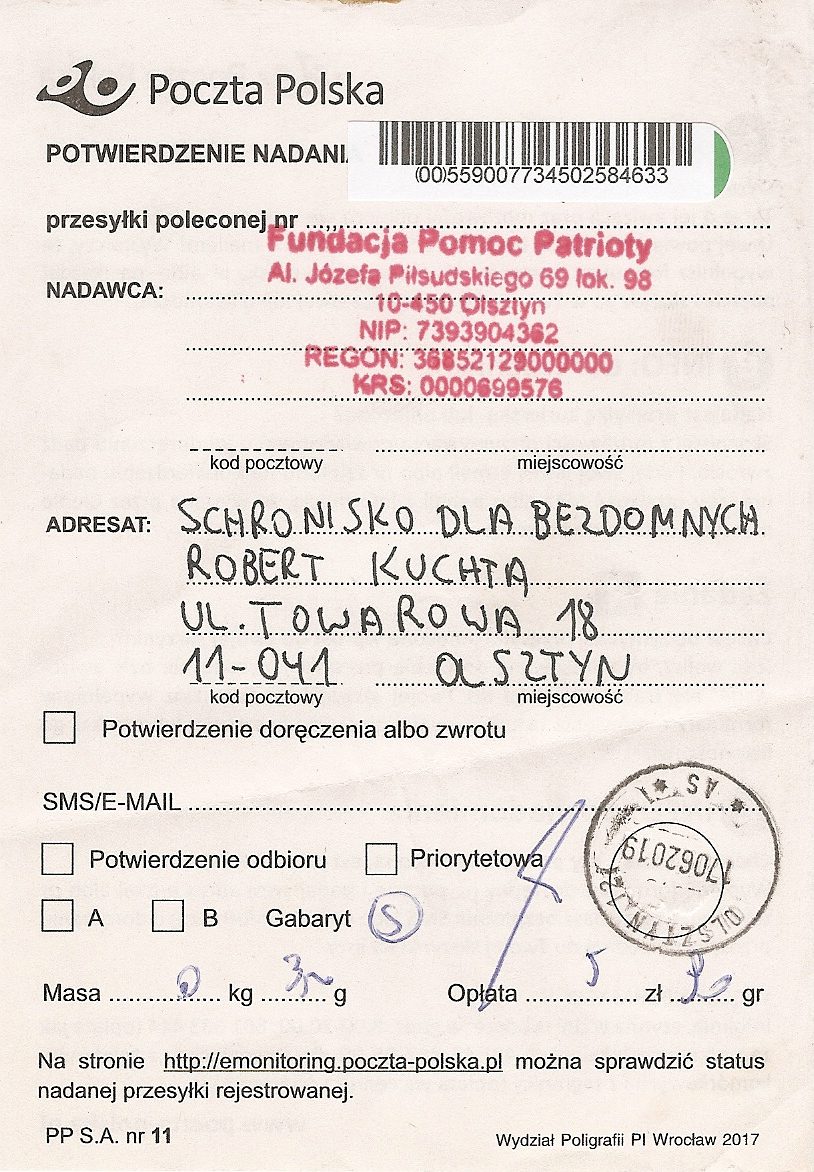 Poczta Polska
POTWIERDZENIE NADANIA
(00)559007734502584633
przesyłki poleconej nr
Fundacja Pomoc Patrioty
Al. Józefa Piłsudskiego 69 lok. 98
NADAWCA:
10-450 Olsztyn
NIP: 7393904362
REGON: 36852129000000
KRS: 0000699576
kod pocztowy miejscowość
ADRESAT: SCHRONISKO DLA BEZDOMNYCH
ROBERT KUCHTA
UL. TOWAROWA 18
11-041 OLSZTYN
kod pocztowy miejscowość
Potwierdzenie doręczenia albo zwrotu
SMS/E-MAIL
Potwierdzenie odbioru Priorytetowa
A B Gabaryt S
OLSZTYN 17062019 AS
Masa 0 kg g Opłata 5 zł gr
Na stronie http://emonitoring.poczta-polska.pl można sprawdzić status
nadanej przesyłki rejestrowanej.
PP S.A. nr 11 Wydział Poligrafii PI Wrocław 2017